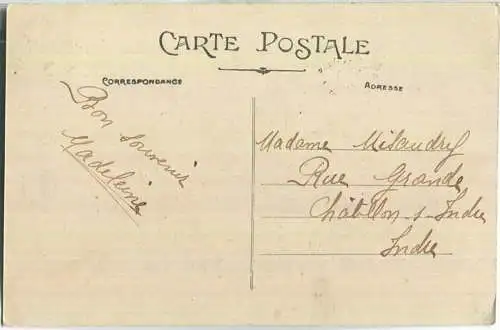 CARTE POSTALE
CORRESPONDANCE
ADRESSE
Bon souvenir
Madeleine
Madame Misaudry
Rue Grande
Châtillon s Indre
Indre